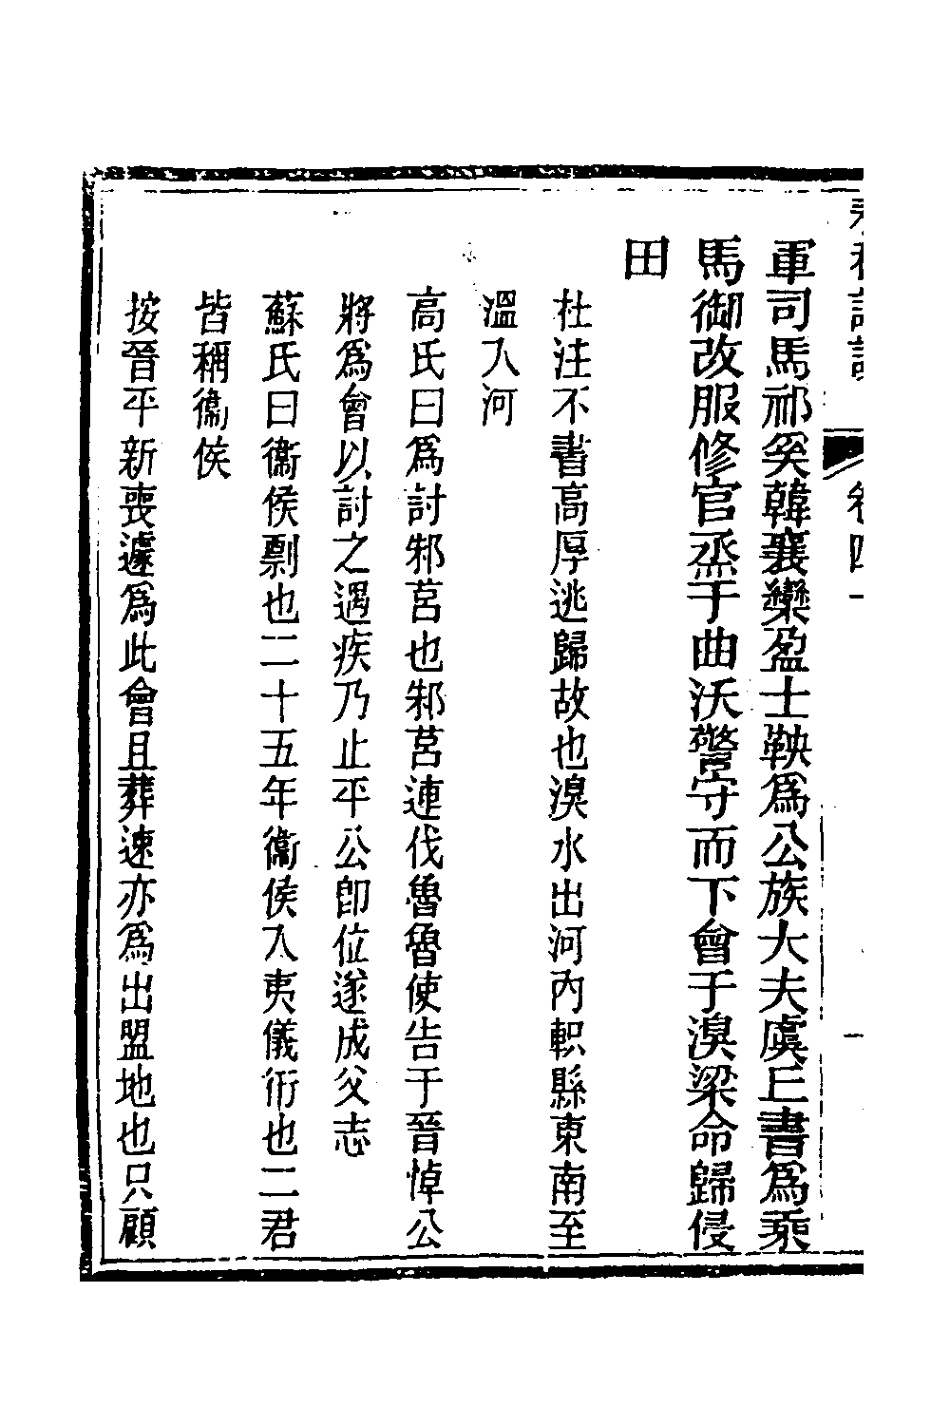 軍司馬祁奚韓襄欒盈士鞅爲公族大夫虞丘書爲乘
馬御改服修官烝于曲沃警守而下會于湨梁命歸侵
田
杜注不書高厚逃歸故也湨水出河內軹縣東南至
溫入河
高氏曰爲討邾莒也邾莒連伐魯魯使告于晉悼公
將爲會以討之遇疾乃止平公卽位遂成父志
蘇氏曰衞侯剽也二十五年衞侯入夷儀衎也二君
皆稱衞侯
按晉平新喪遽爲此會且葬速亦爲出盟地也只顧